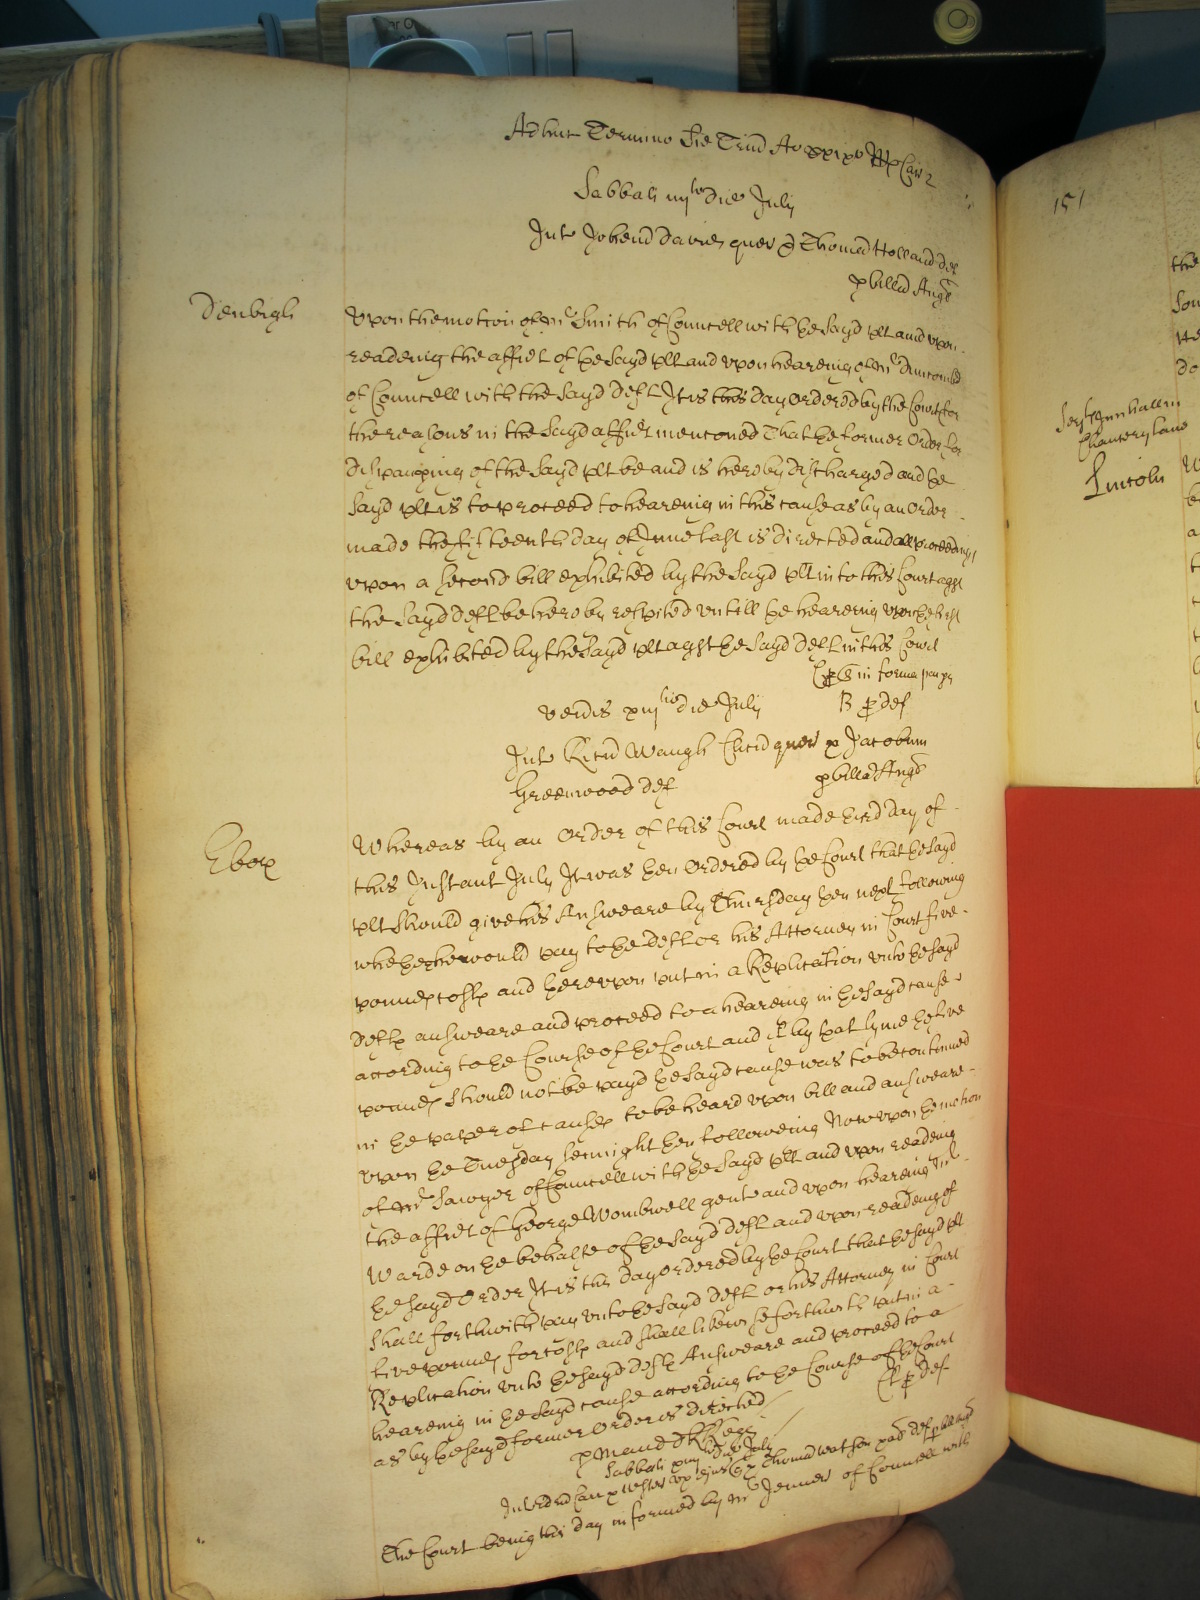 Adhuc Termino Sce Trin Ao xxixo RR Car 2
Sabbati iiijto die July
Inter Johem Davies quer & Thomam Holland def
p billa Angl
Denbigh
Upon the motion of Mr Smith of Councell with ye sayd plt and upon
readeing the affidt of ye sayd plt and upon heareing of Mr Duncombe
of Councell with the sayd deft It is this day ordered by the Court for
the reasons in the sayd affidt mentioned That ye former order for
dispaupring of the sayd plt be and is hereby discharged and ye
sayd plt is to proceed to heareing in this cause as by an order
made the fifteenth day of June last is directed and all proceedings
upon a second bill exhibited by the sayd plt into this Court agst
the sayd deft be hereby respited untill ye heareing upon ye first
bill exhibited by the sayd plt agst ye sayd deft in this Court
in forma paup
B p def
Veneris xiij die July
Inter Ricum Waugh Clicum quer & Jacobum
Greenwood def p billa Angl
Ebor
Whereas by an Order of this Court made third day of
this Instant July It was then ordered by ye Court that ye sayd
plt should give his Answeare by Thursday then next following
whether he would pay to ye deft or his Attorney in Court five
pounds costs and thereupon put in a Replication unto ye sayd
defts answeare and proceed to a heareing in ye sayd cause
according to ye Course of ye Court and if by that tyme ye five
pounds should not be payd ye sayd cause was to be continued
in ye paper of causes to be heard upon bill and answeare
upon ye Tuesday sennight then followeing Now upon ye motion
of Mr Sawyer of Councell with ye sayd plt and upon readeing
the affidt of George Wombwell gent and upon heareing Mr
Warde on ye behalfe of ye sayd deft and upon readeing of
ye sayd Order It is this day ordered by ye Court that ye sayd plt
shall forthwith pay unto ye sayd deft or his Attorney in Court
five pounds for costs and shall likewise forthwith put in a
Replication unto ye sayd defts Answeare and proceed to a
heareing in ye sayd cause according to ye Course of ye Court
as by ye sayd former order is directed p def
Sabbati die July
Thomam Watson def p bill Angl
The Court being this day informed by Mr Jenner of Councell with
151
the
Serjts Inn hall in
Chancery Lane
Lincoln